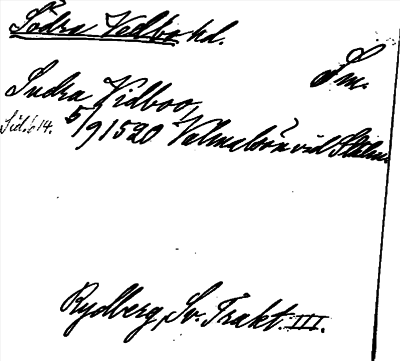 Södra Vedbo hd.
Sm.
Sudra Vidboo,
Sid. 614. 5/9 1520 Valmalösa vid Sthlm.
Rydberg, Sv. Trakt. III.